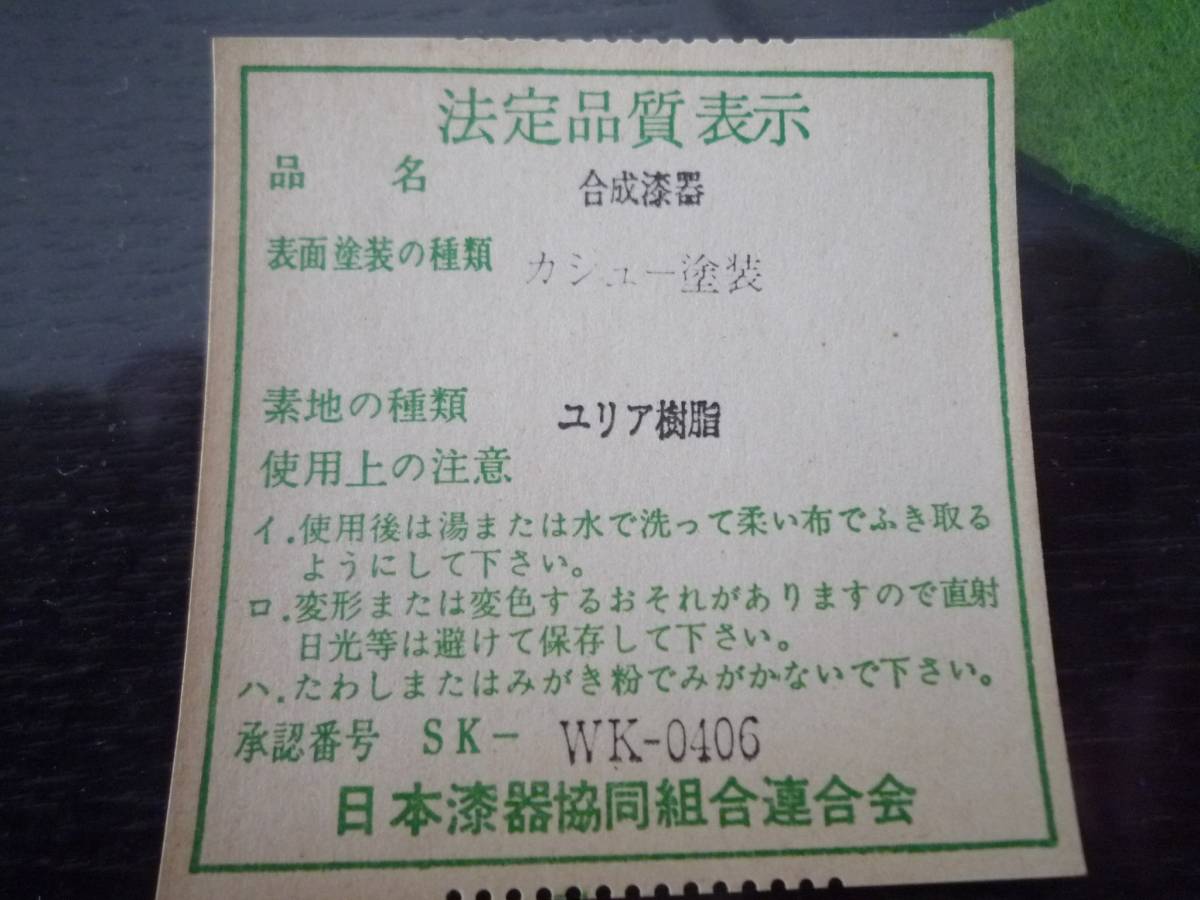 法定品質表示
品　　名　　合成漆器
表面塗装の種類　カシュー塗装
素地の種類　ユリア樹脂
使用上の注意
イ.使用後は湯または水で洗って柔い布でふき取る
ようにして下さい。
ロ.変形または変色するおそれがありますので直射
日光等は避けて保存して下さい。
ハ.たわしまたはみがき粉でみがかないで下さい。
承認番号　SK-　WK-0406
日本漆器協同組合連合会